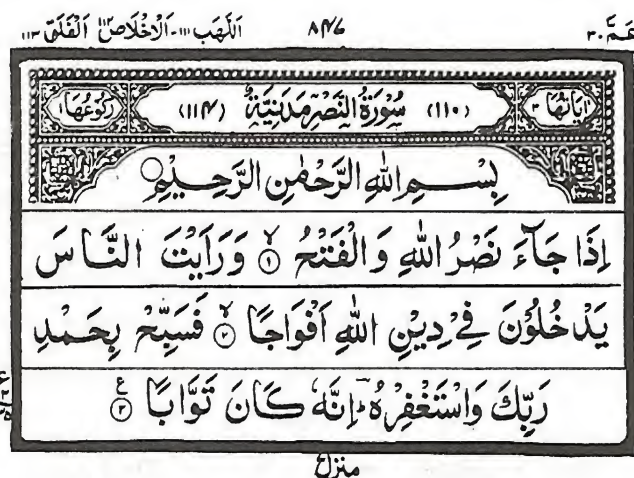 عمّ ٣٠ ٨٣٦ اَللَّهَب ١١١-اَلْاِخْلَاص ١١٢ اَلْفَلَق ١١٣
اٰيَاتُهَا ٣ (١١٠) سُوْرَةُ النَّصْرِ مَدَنِيَّةٌ (١١٤) رُكُوْعُهَا ١
بِسْمِ اللّٰهِ الرَّحْمٰنِ الرَّحِيْمِ
اِذَا جَآءَ نَصْرُ اللّٰهِ وَ الْفَتْحُ ۙ۝١ وَ رَاَيْتَ النَّاسَ
يَدْخُلُوْنَ فِيْ دِيْنِ اللّٰهِ اَفْوَاجًا ۙ۝٢ فَسَبِّحْ بِحَمْدِ
رَبِّكَ وَ اسْتَغْفِرْهُ ؔؕ اِنَّهٗ كَانَ تَوَّابًا ۝٣ ع
منزل